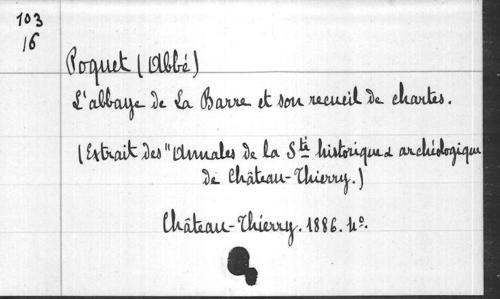 103
16
Poquet (Abbé)
L'abbaye de La Barre et son recueil de chartes.
(Extrait des "Annales de la Sté historique & archéologique
de Château-Thierry.)
Château-Thierry. 1886. 4º.